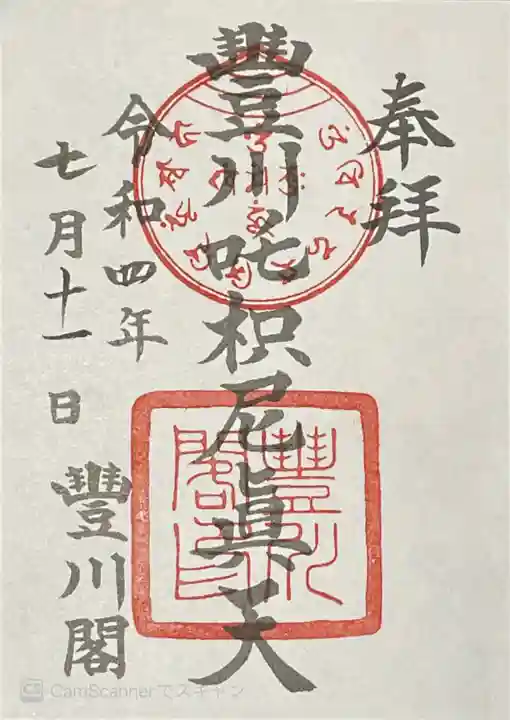 奉拝
豐川吒枳尼眞天
令和四年
七月十一日
豐川閣
豐川閣印
CamScannerでスキャン